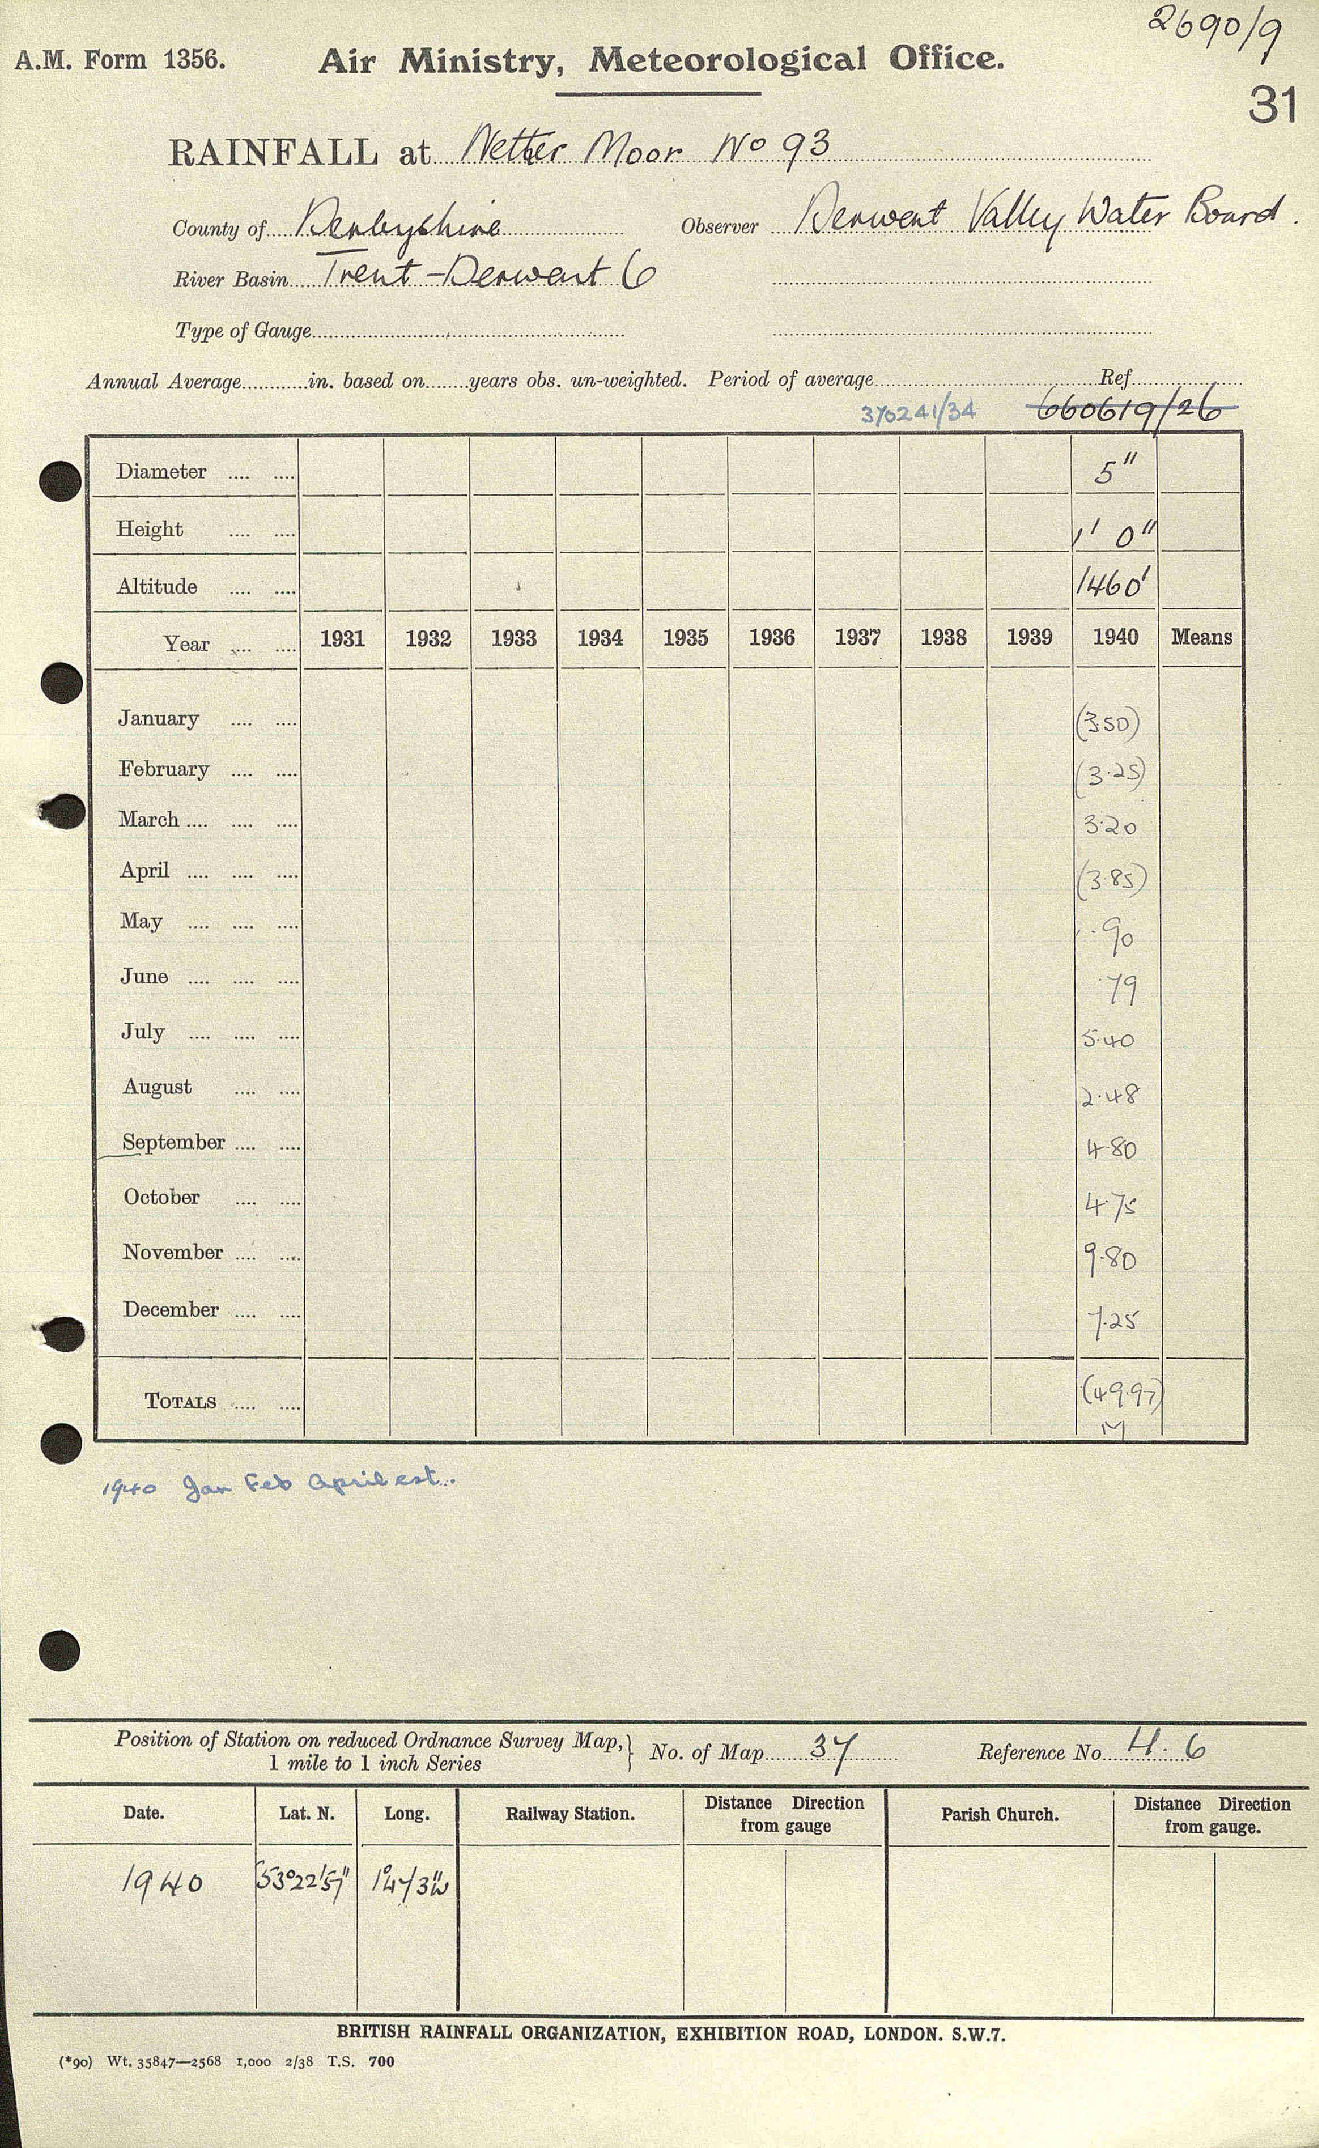 2690/9
A.M. Form 1356. Air Ministry, Meteorological Office.
31
RAINFALL at Nether Moor No 93
County of Derbyshire Observer Derwent Valley Water Board.
River Basin Trent-Derwent 6
Type of Gauge
Annual Average in. based on years obs. un-weighted. Period of average Ref
370241/34 660619/26
Diameter 5"
Height 1' 0"
Altitude 1460'
Year 1931 1932 1933 1934 1935 1936 1937 1938 1939 1940 Means
January (3.50)
February (3.25)
March 3.20
April (3.85)
May .90
June .79
July 5.40
August 2.48
September 4.80
October 4.75
November 9.80
December 7.25
TOTALS (49.97)
M
1940 Jan Feb April est.
Position of Station on reduced Ordnance Survey Map, 1 mile to 1 inch Series } No. of Map 37 Reference No 4.6
Date. Lat. N. Long. Railway Station. Distance Direction from gauge Parish Church. Distance Direction from gauge.
1940 53°22'57" 1°47'3"W
BRITISH RAINFALL ORGANIZATION, EXHIBITION ROAD, LONDON. S.W.7.
(*90) Wt. 35847—2568 1,000 2/38 T.S. 700